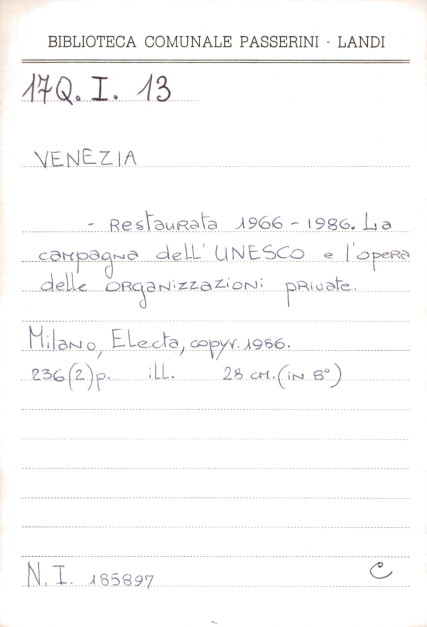 BIBLIOTECA COMUNALE PASSERINI - LANDI
17Q. I. 13
VENEZIA
- Restaurata 1966 - 1986. La
campagna dell' UNESCO e l'opera
delle organizzazioni private.
Milano, Electa, copyr. 1986.
236(2)p. ill. 28 cm. (in 8°)
N. I. 185897
C